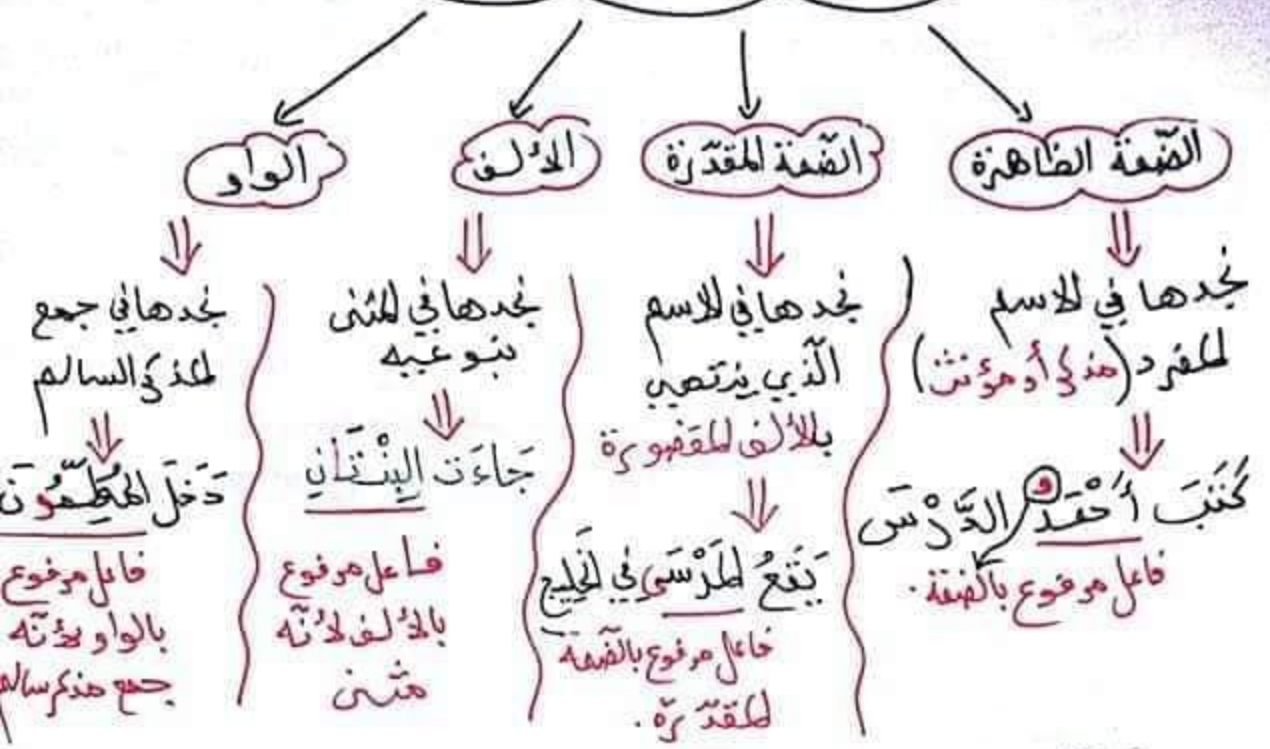 الضّمة الظاهرة
نجدها في الاسم
المفرد (مذكر أو مؤنث)
كَتَبَ أَحْمَدُ الدَّرْسَ
فاعل مرفوع بالضمة.
الضّمة المقدّرة
نجدها في الاسم
الّذي ينتهي
بالألف المقصورة
يَقَعُ المَرْسَى في الخليج
فاعل مرفوع بالضّمة
المقدّرة.
الألف
نجدها في المثنى
بنوعيه
جَاءَت البِنْتَانِ
فاعل مرفوع
بالألف لأنّه
مثنى
الواو
نجدها في جمع
المذكر السالم
دَخَلَ
فاعل مرفوع
بالواو لأنّه
جمع مذكر سالم